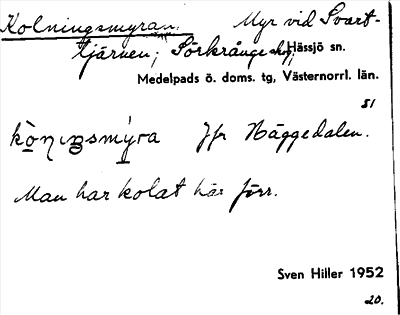 Kolningsmyran. Myr vid Svart-
tjärnen; Sörkrånge by, Hässjö sn.
Medelpads ö. doms. tg, Västernorrl. län.
51
kòṇıŋsmýra Jfr Häggedalen.
Man har kolat här förr.
Sven Hiller 1952
20.